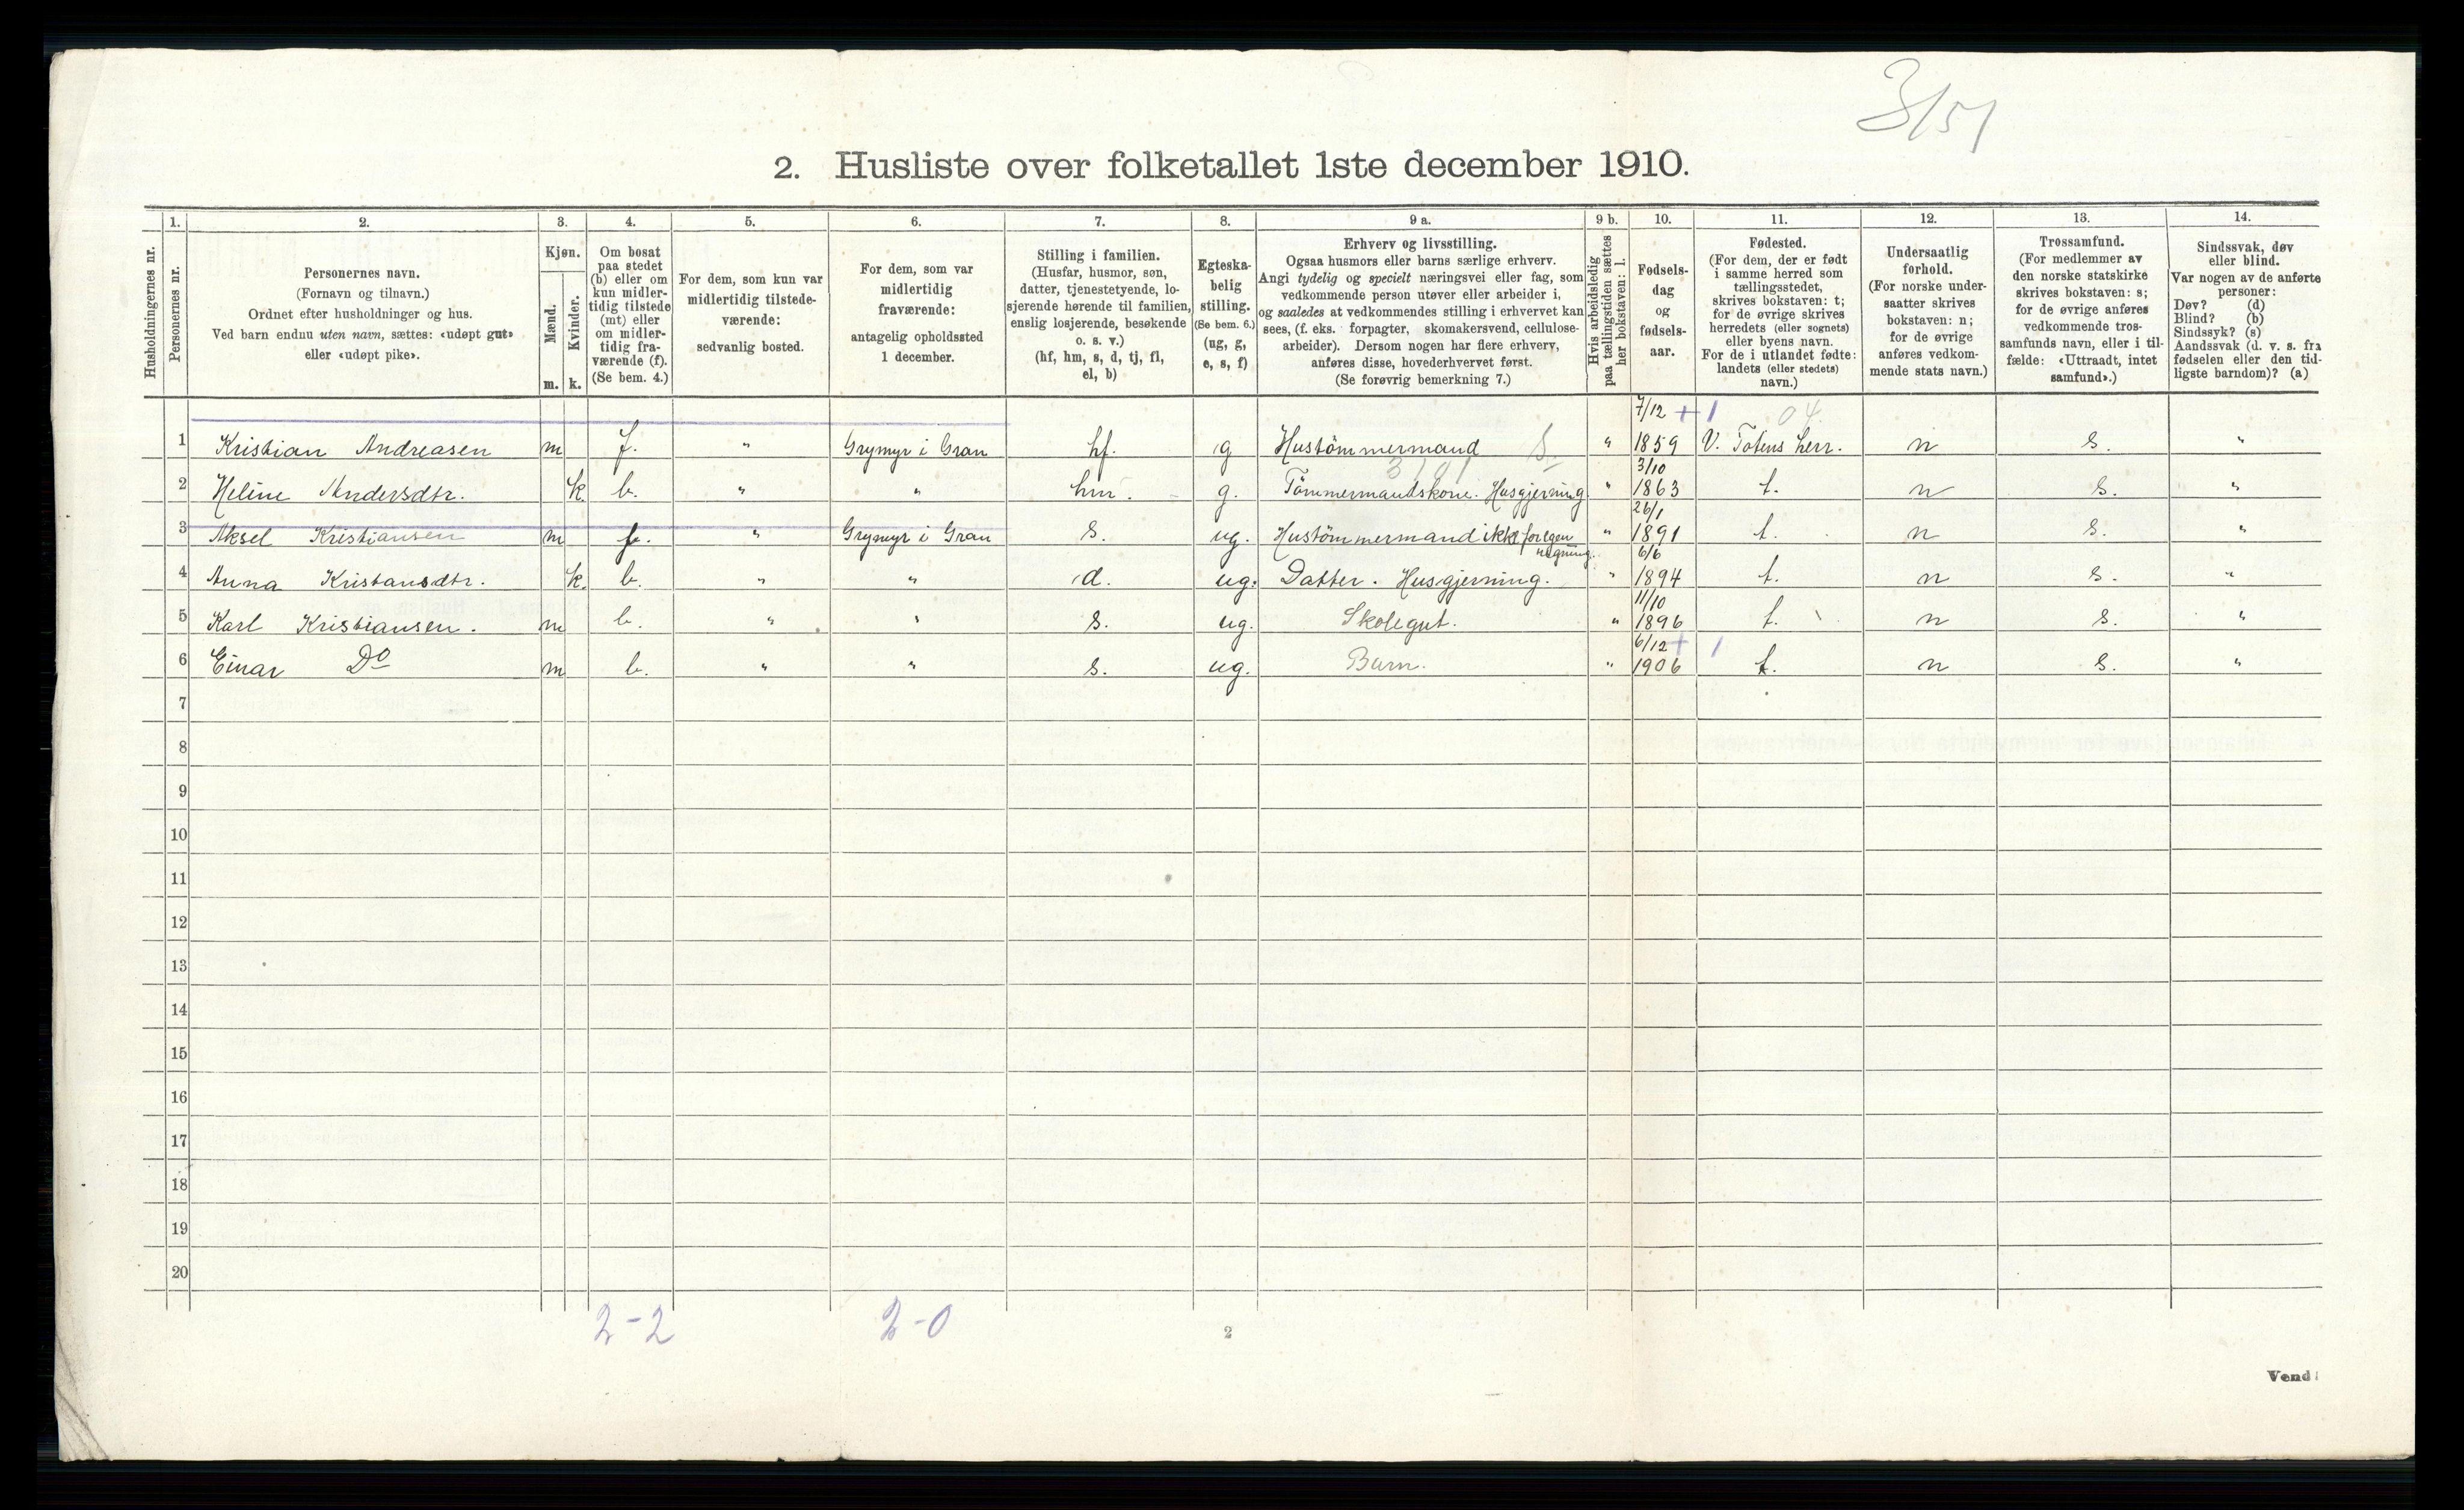 3/51
2. Husliste over folketallet 1ste december 1910.
1. 2. 3. 4. 5. 6. 7. 8. 9 a. 9 b. 10. 11. 12. 13. 14.
Husholdningernes nr.
Personernes nr.
Personernes navn.
(Fornavn og tilnavn.)
Ordnet efter husholdninger og hus.
Ved barn endnu uten navn, sættes: «udøpt gut»
eller «udøpt pike».
Kjøn.
Mænd.
Kvinder.
m. k.
Om bosat
paa stedet
(b) eller om
kun midler-
tidig tilstede
(mt) eller
om midler-
tidig fra-
værende (f).
(Se bem. 4.)
For dem, som kun var
midlertidig tilstede-
værende:
sedvanlig bosted.
For dem, som var
midlertidig
fraværende:
antagelig opholdssted
1 december.
Stilling i familien.
(Husfar, husmor, søn,
datter, tjenestetyende, lo-
sjerende hørende til familien,
enslig losjerende, besøkende
o. s. v.)
(hf, hm, s, d, tj, fl,
el, b)
Egteska-
belig
stilling.
(Se bem. 6.)
(ug, g,
e, s, f)
Erhverv og livsstilling.
Ogsaa husmors eller barns særlige erhverv.
Angi tydelig og specielt næringsvei eller fag, som
vedkommende person utøver eller arbeider i,
og saaledes at vedkommendes stilling i erhvervet kan
sees, (f. eks. forpagter, skomakersvend, cellulose-
arbeider). Dersom nogen har flere erhverv,
anføres disse, hovederhvervet først.
(Se forøvrig bemerkning 7.)
Hvis arbeidsledig
paa tællingstiden sættes
her bokstaven: l.
Fødsels-
dag
og
fødsels-
aar.
Fødested.
(For dem, der er født
i samme herred som
tællingsstedet,
skrives bokstaven: t;
for de øvrige skrives
herredets (eller sognets)
eller byens navn.
For de i utlandet fødte:
landets (eller stedets)
navn.)
Undersaatlig
forhold.
(For norske under-
saatter skrives
bokstaven: n;
for de øvrige
anføres vedkom-
mende stats navn.)
Trossamfund.
(For medlemmer av
den norske statskirke
skrives bokstaven: s;
for de øvrige anføres
vedkommende tros-
samfunds navn, eller i til-
fælde: «Uttraadt, intet
samfund».)
Sindssvak, døv
eller blind.
Var nogen av de anførte
personer:
Døv? (d)
Blind? (b)
Sindssyk? (s)
Aandssvak (d. v. s. fra
fødselen eller den tid-
ligste barndom)? (a)
7/12 + 1 04
1 Kristian Andreasen m f. " Grymyr i Gran hf. g Hustömmermand S. " 1859 V. Totens herr. n s. "
3101 3/10
2 Heline Andersdtr. k. b. " " hm. g. Tömmermandskone. Husgjerning " 1863 t. n s. "
26/1
3 Aksel Kristiansen m f. " Grymyr i Gran s. ug. Hustömmermand ikke for egen " 1891 t. n s. "
regning. 6/6
4 Anna Kristansdtr. k. b. " " d. ug. Datter. Husgjerning. " 1894 t. n s. "
11/10
5 Karl Kristiansen. m b. " " s. ug. Skolegut. " 1896 t. n s. "
6/12 + 1
6 Einar Do m b. " " s. ug. Barn. " 1906 t. n s. "
7
8
9
10
11
12
13
14
15
16
17
18
19
20
2-2 2-0
2
Vend!